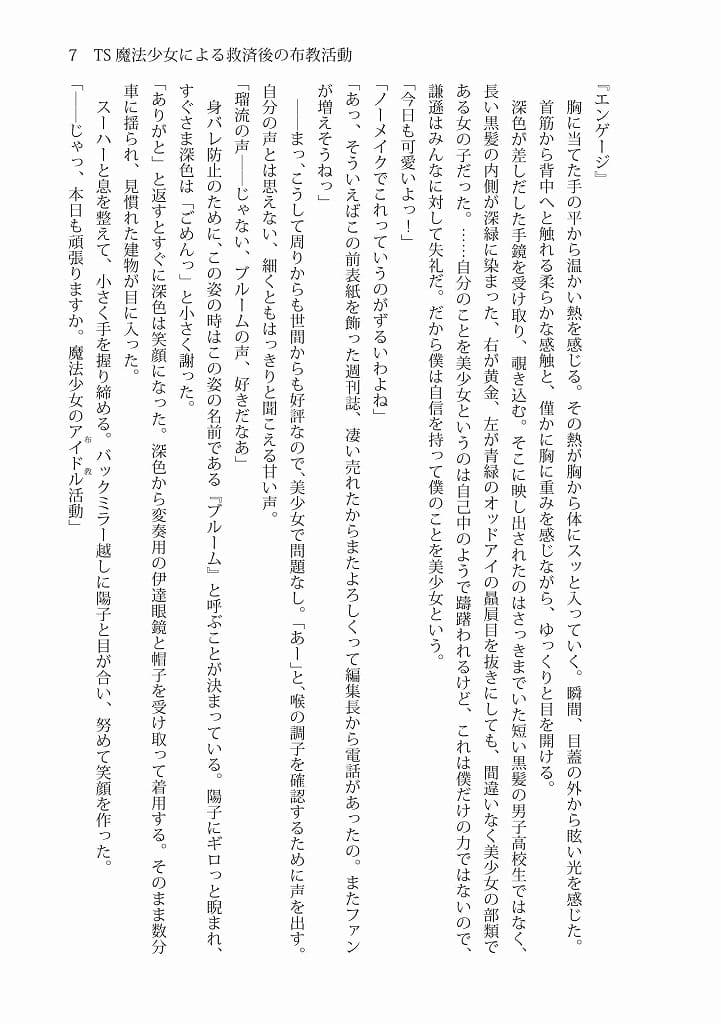 7　TS魔法少女による救済後の布教活動
『エンゲージ』
　胸に当てた手の平から温かい熱を感じる。その熱が胸から体にスッと入っていく。瞬間、目蓋の外から眩い光を感じた。
　首筋から背中へと触れる柔らかな感触と、僅かに胸に重みを感じながら、ゆっくりと目を開ける。
　深色が差しだした手鏡を受け取り、覗き込む。そこに映し出されたのはさっきまでいた短い黒髪の男子高校生ではなく、
長い黒髪の内側が深緑に染まった、右が黄金、左が青緑のオッドアイの贔屓目を抜きにしても、間違いなく美少女の部類で
ある女の子だった。……自分のことを美少女というのは自己中のようで躊躇われるけど、これは僕だけの力ではないので、
謙遜はみんなに対して失礼だ。だから僕は自信を持って僕のことを美少女という。
「今日も可愛いよっ！」
「ノーメイクでこれっていうのがずるいわよね」
「あっ、そういえばこの前表紙を飾った週刊誌、凄い売れたからまたよろしくって編集長から電話があったの。またファン
が増えそうねっ」
　――まっ、こうして周りからも世間からも好評なので、美少女で問題なし。「あー」と、喉の調子を確認するために声を出す。
自分の声とは思えない、細くともはっきりと聞こえる甘い声。
「瑠流の声――じゃない、ブルームの声、好きだなあ」
　身バレ防止のために、この姿の時はこの姿の名前である『ブルーム』と呼ぶことが決まっている。陽子にギロっと睨まれ、
すぐさま深色は「ごめんっ」と小さく謝った。
「ありがと」と返すとすぐに深色は笑顔になった。深色から変奏用の伊達眼鏡と帽子を受け取って着用する。そのまま数分
車に揺られ、見慣れた建物が目に入った。
　スーハーと息を整えて、小さく手を握り締める。バックミラー越しに陽子と目が合い、努めて笑顔を作った。
「――じゃっ、本日も頑張りますか。魔法少女のアイドル活動」
布教